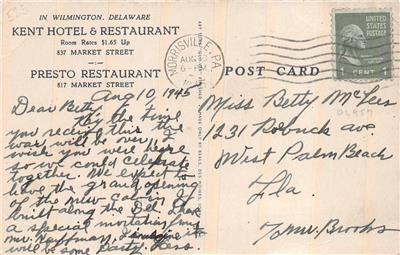 IN WILMINGTON, DELAWARE
KENT HOTEL & RESTAURANT
Room Rates $1.65 Up
837 MARKET STREET
PRESTO RESTAURANT
817 MARKET STREET
MORRISVILLE, PA.
AUG
6 - PM
UNITED STATES POSTAGE
1 CENT 1
POST CARD
Aug 10, 1945
Dear Betty
By the time
you receive this the
war will be over
wish you were here
so we could celebrate
together. We expect to
have the grand opening
of the new
built along the Del.
a special invitation
Mr.
will be some party.
Miss Betty McLees
1231 Roanoke Ave
West Palm Beach
Fla.